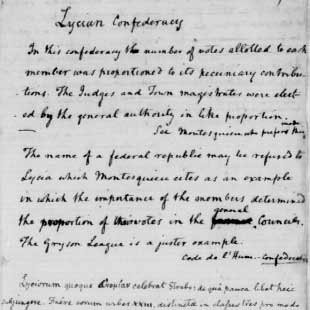 Lycian Confederacy
In this confederacy the number of votes allotted to each
member was proportioned to its pecuniary contribu-
tions. The Judges and Town magistrates were elect-
ed by the general authority in like proportion.
See Montesquieu who prefers
The name of a federal republic may be refused to
Lycia which Montesquieu cites as an example
in which the importance of the members determined
the proportion of their votes in the general Councils.
The Gryson League is a juster example.
Code de l'Hum. Confederation
Lyciorum quoque celebrat Strabo: de quâ pauca libet heic
adjungere. Fuêre eorum urbes XXIII, distinctæ in classes tres pro modo